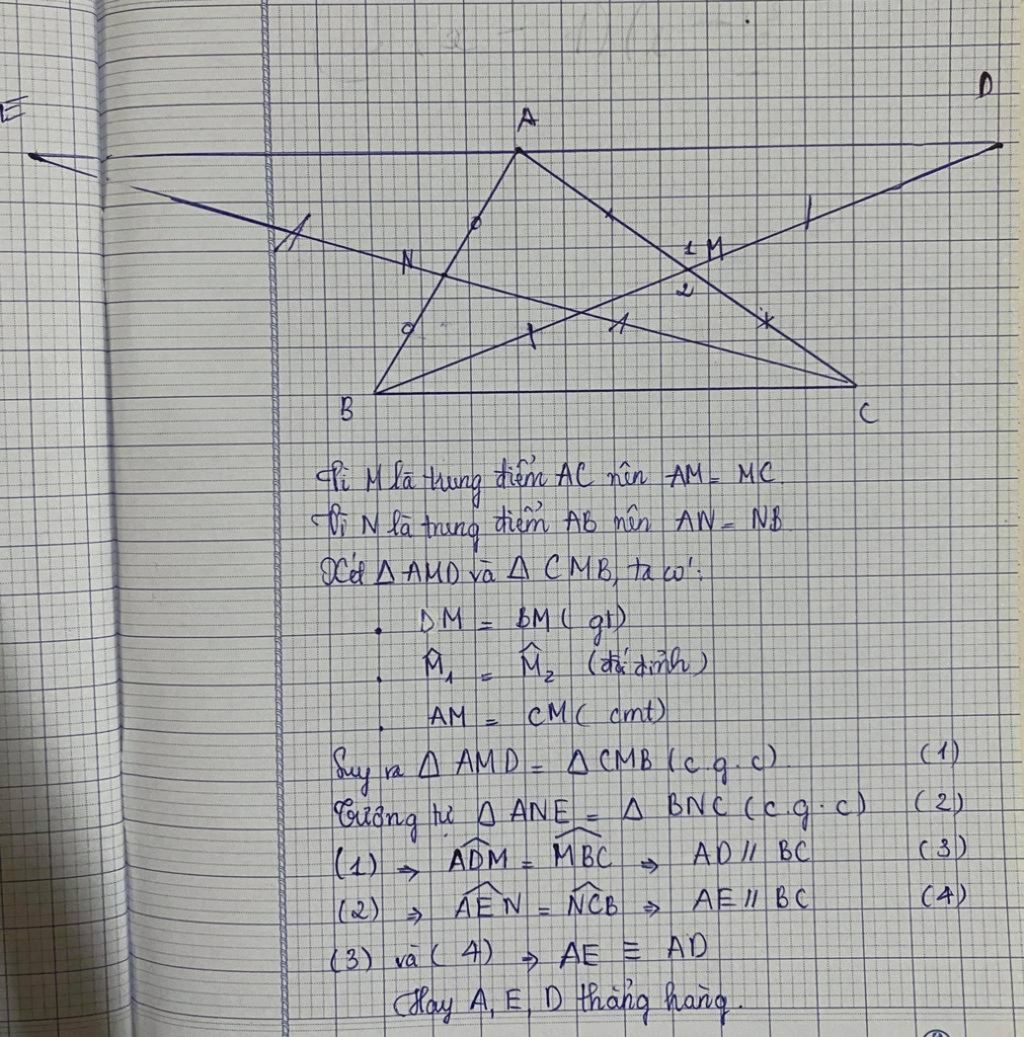 E
D
A
N
1 M
2
B
C
Vì M là trung điểm AC nên AM = MC
Vì N là trung điểm AB nên AN = NB
Xét Δ AMD và Δ CMB, ta có:
. DM = BM ( gt)
. M̂₁ = M̂₂ (đối đỉnh)
. AM = CM ( cmt)
Suy ra Δ AMD = Δ CMB (c g . c) (1)
Tương tự Δ ANE = Δ BNC (c.g.c) (2)
(1) ⇒ \widehat{ADM} = \widehat{MBC} ⇒ AD // BC (3)
(2) ⇒ \widehat{AEN} = \widehat{NCB} ⇒ AE // BC (4)
(3) và ( 4) ⇒ AE ≡ AD
Hay A, E, D thẳng hàng.